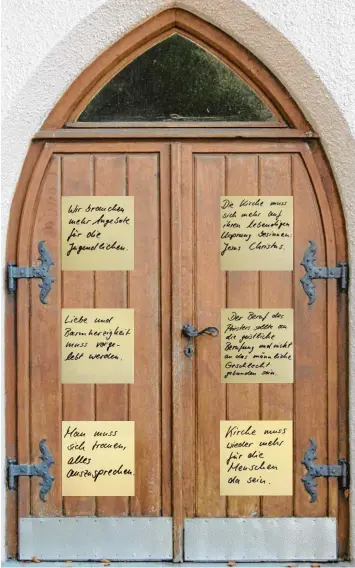 Wir brauchen
mehr Angebote
für die
Jugendlichen.
Liebe und
Barmherzigkeit
muss vorge-
lebt werden.
Man muss
sich trauen,
alles
auszusprechen.
Die Kirche muss
sich mehr auf
ihren lebendigen
Ursprung besinnen:
Jesus Christus.
Der Beruf des
Priesters sollte an
die geistliche
Berufung und nicht
an das männliche
Geschlecht
gebunden sein.
Kirche muss
wieder mehr
für die
Menschen
da sein.